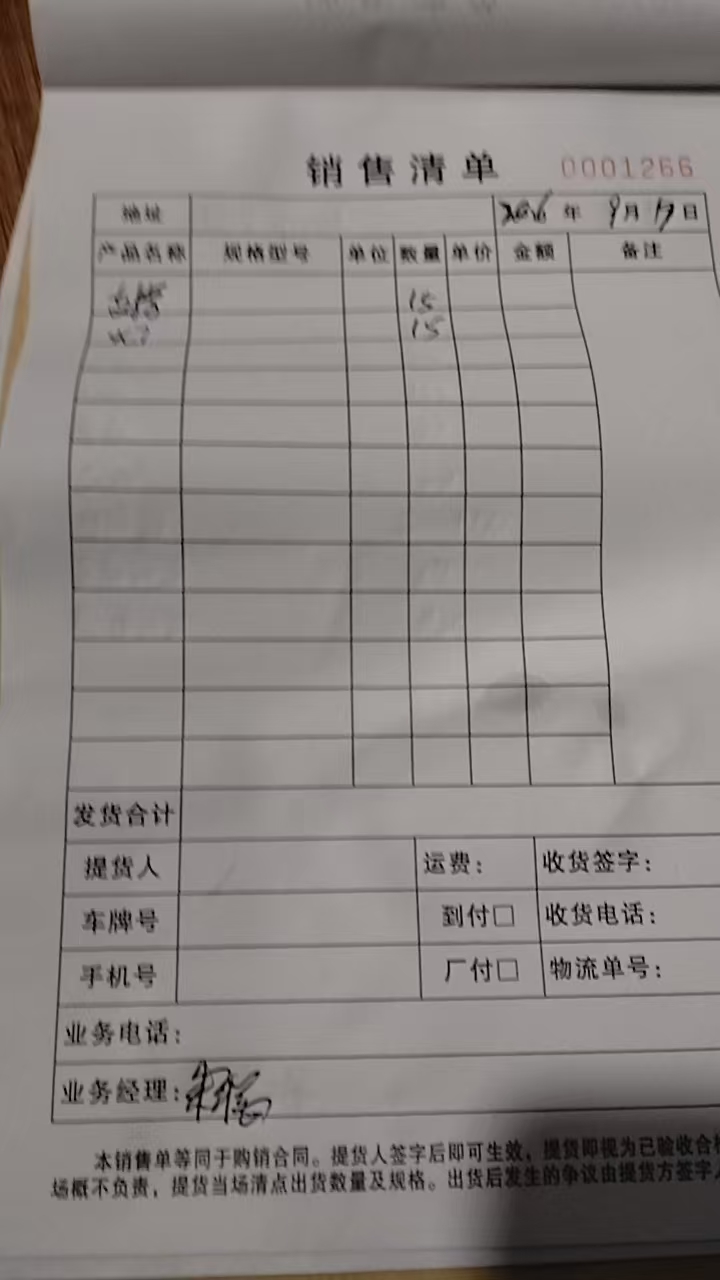 销售清单 0001266
地址 年 9月17日
产品名称 规格型号 单位 数量 单价 金额 备注
15
15
发货合计
提货人 运费： 收货签字：
车牌号 到付□ 收货电话：
手机号 厂付□ 物流单号：
业务电话：
业务经理：
本销售单等同于购销合同。提货人签字后即可生效，提货即视为已验收合
场概不负责，提货当场清点出货数量及规格。出货后发生的争议由提货方签字